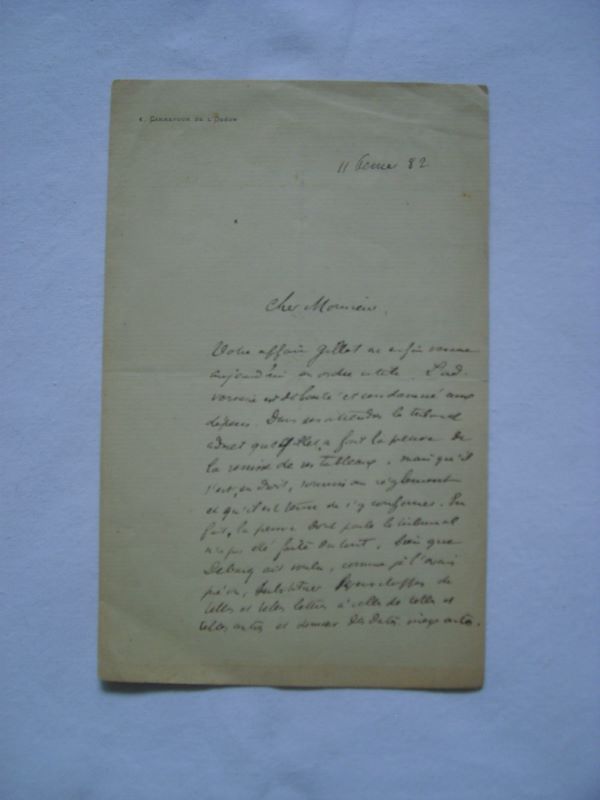 4, CARREFOUR DE L'ODÉON
11 fevrier 82
Cher Monsieur,
Votre affaire Gillot est enfin venue
aujourd'hui en ordre utile. L'ad-
versaire est débouté et condamné aux
dépens. Dans ses attendus le tribunal
admet que Gillot a fait la preuve de
la remise de ses tableaux, mais qu'il
s'est, en droit, soumis au règlement
et qu'il est tenu de s'y conformer. En
fait, la preuve dont parle le tribunal
n'a pas été faite du tout, bien que
ait voulu, comme je l'avais
prévu, substituer enveloppes de
telles et telles lettres à celles de telles et
telles autres et donner des dates inexactes.